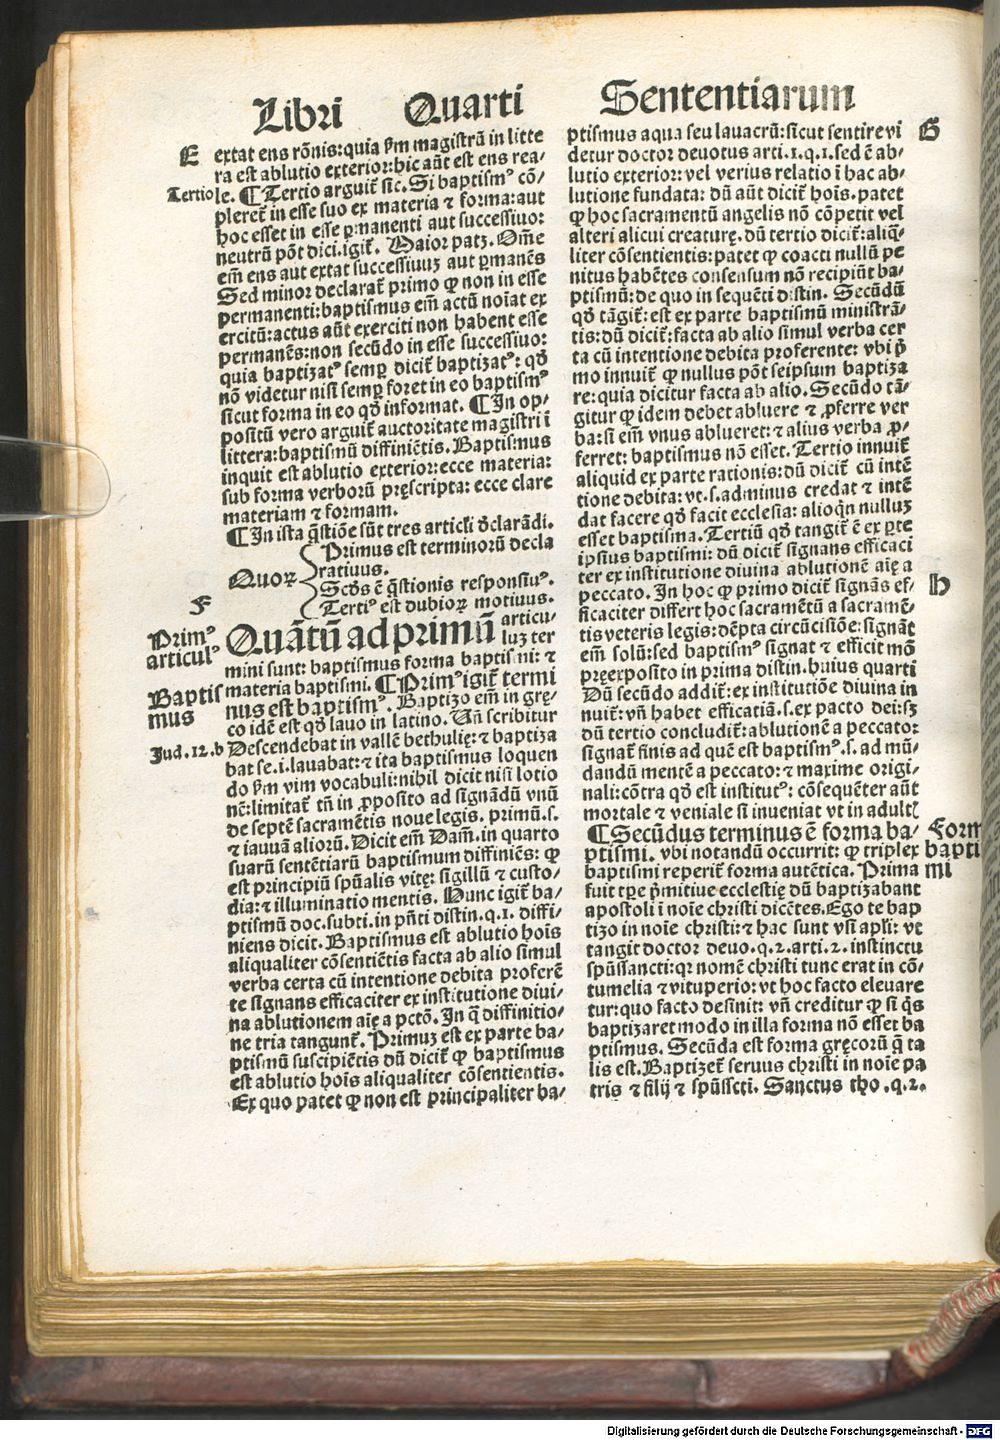 Libri Quarti Sententiarum
E
extat ens rōnis: quia ẜm magistrū in litte
ra est ablutio exterior: hic aūt est ens rea/
Tertio
le. ¶ Tertio arguit᷑ sic. Si baptismꝰ cō/
pleret᷑ in esse suo ex materia ⁊ forma: aut
hoc esset in esse ꝑmanenti aut successiuo:
neutrū pōt dici. igit᷑. Maior patꝫ. Om̄e
em̄ ens aut extat successiuuꝫ aut ꝑmanēs
Sed minor declarat᷑ primo ꝙ non in esse
permanenti: baptismus em̄ actū noīat ex
ercitū: actus aūt exerciti non habent esse
permanēs: non secūdo in esse successiuo:
quia baptizatꝰ semꝑ dicit᷑ baptizatꝰ: qđ
nō videtur nisi semꝑ foret in eo baptismꝰ
sicut forma in eo qđ informat. ¶ In op/
positū vero arguit᷑ auctoritate magistri ī
littera: baptismū diffiniētis. Baptismus
inquit est ablutio exterior: ecce materia:
sub forma verborū pręscripta: ecce clare
materiam ⁊ formam.
¶ In ista q̄stiōe sūt tres articľi ďclarādi.
Primus est terminorū decla
ratiuus.
Quoꝝ
Scďs ē q̄stionis responsiuꝰ.
Tertiꝰ est dubioꝝ motiuus.
F
Primꝰ
articulꝰ
Quātū ad primū articu/
luꝫ ter
mini sunt: baptismus forma baptismi: ⁊
materia baptismi. ¶ Primꝰ igit᷑ termi
Baptis
mus
nus est baptismꝰ. Baptizo em̄ in grę/
co idē est qđ lauo in latino. Vn̄ scribitur
Jud. 12. b
Descendebat in vallē bethulię: ⁊ baptiza
bat se. i. lauabat: ⁊ ita baptismus loquen
do ẜm vim vocabuli: nihil dicit nisi lotio
nē: limitat᷑ tn̄ in ꝓposito ad signādū vnū
de septē sacramētis noue legis. primū. s.
⁊ ianuā aliorū. Dicit em̄ Dam̄. in quarto
suarū sentētiarū baptismum diffiniēs: ꝙ
est principiū spūalis vitę: sigillū ⁊ custo/
dia: ⁊ illuminatio mentis. Nunc igit᷑ ba/
ptismū doc. subti. in pn̄ti distin. q. 1. diffi/
niens dicit. Baptismus est ablutio hoīs
aliqualiter cōsentiētis facta ab alio simul
verba certa cū intentione debita proferē
te signans efficaciter ex institutione diui/
na ablutionem aīę a pctō. In q̄ diffinitio/
ne tria tangunt᷑. Primuꝫ est ex parte ba/
ptismū suscipiētis dū dicit᷑ ꝙ baptismus
est ablutio hoīs aliqualiter cōsentientis.
Ex quo patet ꝙ non est principaliter ba/
G
ptismus aqua seu lauacrū: sicut sentire vi
detur doctor deuotus arti. 1. q. 1. sed ē ab/
lutio exterior: vel verius relatio ī hac ab/
lutione fundata: dū aūt dicit᷑ hoīs. patet
ꝙ hoc sacramentū angelis nō cōpetit vel
alteri alicui creaturę. dū tertio dicit᷑: aliq̄/
liter cōsentientis: patet ꝙ coacti nullū pe
nitus habētes consensum nō recipiūt ba/
ptismū: de quo in sequēti distin. Secūdū
qđ tāgit᷑: est ex parte baptismū ministrā/
tis: dū dicit᷑: facta ab alio simul verba cer
ta cū intentione debita proferente: vbi p̄
mo innuit᷑ ꝙ nullus pōt seipsum baptiza
re: quia dicitur facta ab alio. Secūdo tā/
gitur ꝙ idem debet abluere ⁊ ꝓferre ver
ba: si em̄ vnus ablueret: ⁊ alius verba ꝓ/
ferret: baptismus nō esset. Tertio innuit᷑
aliquid ex parte rationis: dū dicit᷑ cū intē
tione debita: vt. s. ad minus credat ⁊ intē
dat facere qđ facit ecclesia: alioq̇n nulluꝫ
esset baptisma. Tertiū qđ tangit᷑ ē ex ꝑte
ipsius baptismi: dū dicit᷑ signans efficaci
ter ex institutione diuina ablutionē aīę a
H
peccato. In hoc ꝙ primo dicit᷑ signās ef/
ficaciter differt hoc sacramētū a sacramē/
tis veteris legis: dēpta circūcisiōe: signāt
em̄ solū: sed baptismꝰ signat ⁊ efficit mō
pręexposito in prima distin. huius quarti
Dū secūdo addit᷑: ex institutiōe diuina in
nuit᷑: vn̄ habet efficatiā. s. ex pacto dei: sꝫ
dū tertio concludit᷑: ablutionē a peccato:
signat᷑ finis ad quē est baptismꝰ. s. ad mū/
dandū mentē a peccato: ⁊ maxime origi/
nali: cōtra qđ est institutꝰ: cōsequēter aūt
mortale ⁊ veniale si inueniat᷑ vt in adult᷑
¶ Secūdus terminus ē forma ba/
Form
bapti
mi
ptismi. vbi notandū occurrit: ꝙ triplex
baptismi reperit᷑ forma autētica. Prima
fuit tꝑe p̄mitiue ecclesię dū baptizabant
apostoli ī noīe christi dicētes. Ego te bap
tizo in noīe christi: ⁊ hac sunt vsi apľi: vt
tangit doctor deuo. q. 2. arti. 2. instinctu
spūssancti: qꝛ nomē christi tunc erat in cō/
tumelia ⁊ vituperio: vt hoc facto eleuare
tur: quo facto desinit: vn̄ creditur ꝙ si q̇s
baptizaret modo in illa forma nō esset ba
ptismus. Secūda est forma gręcorū q̄ ta
lis est. Baptizet᷑ seruus christi in noīe pa
tris ⁊ filij ⁊ spūsscti. Sanctus tho. q. 2.
Digitalisierung gefördert durch die Deutsche Forschungsgemeinschaft - DFG